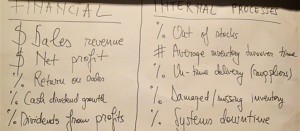 FINANCIAL
$ Sales revenue
$ Net profit
% Return on sales
% Cash dividend growth
% Dividends from profits
INTERNAL PROCESSES
% Out of stocks
# Average inventory turnover time
% On-time delivery (suppliers)
% Damaged/missing inventory
% Systems downtime